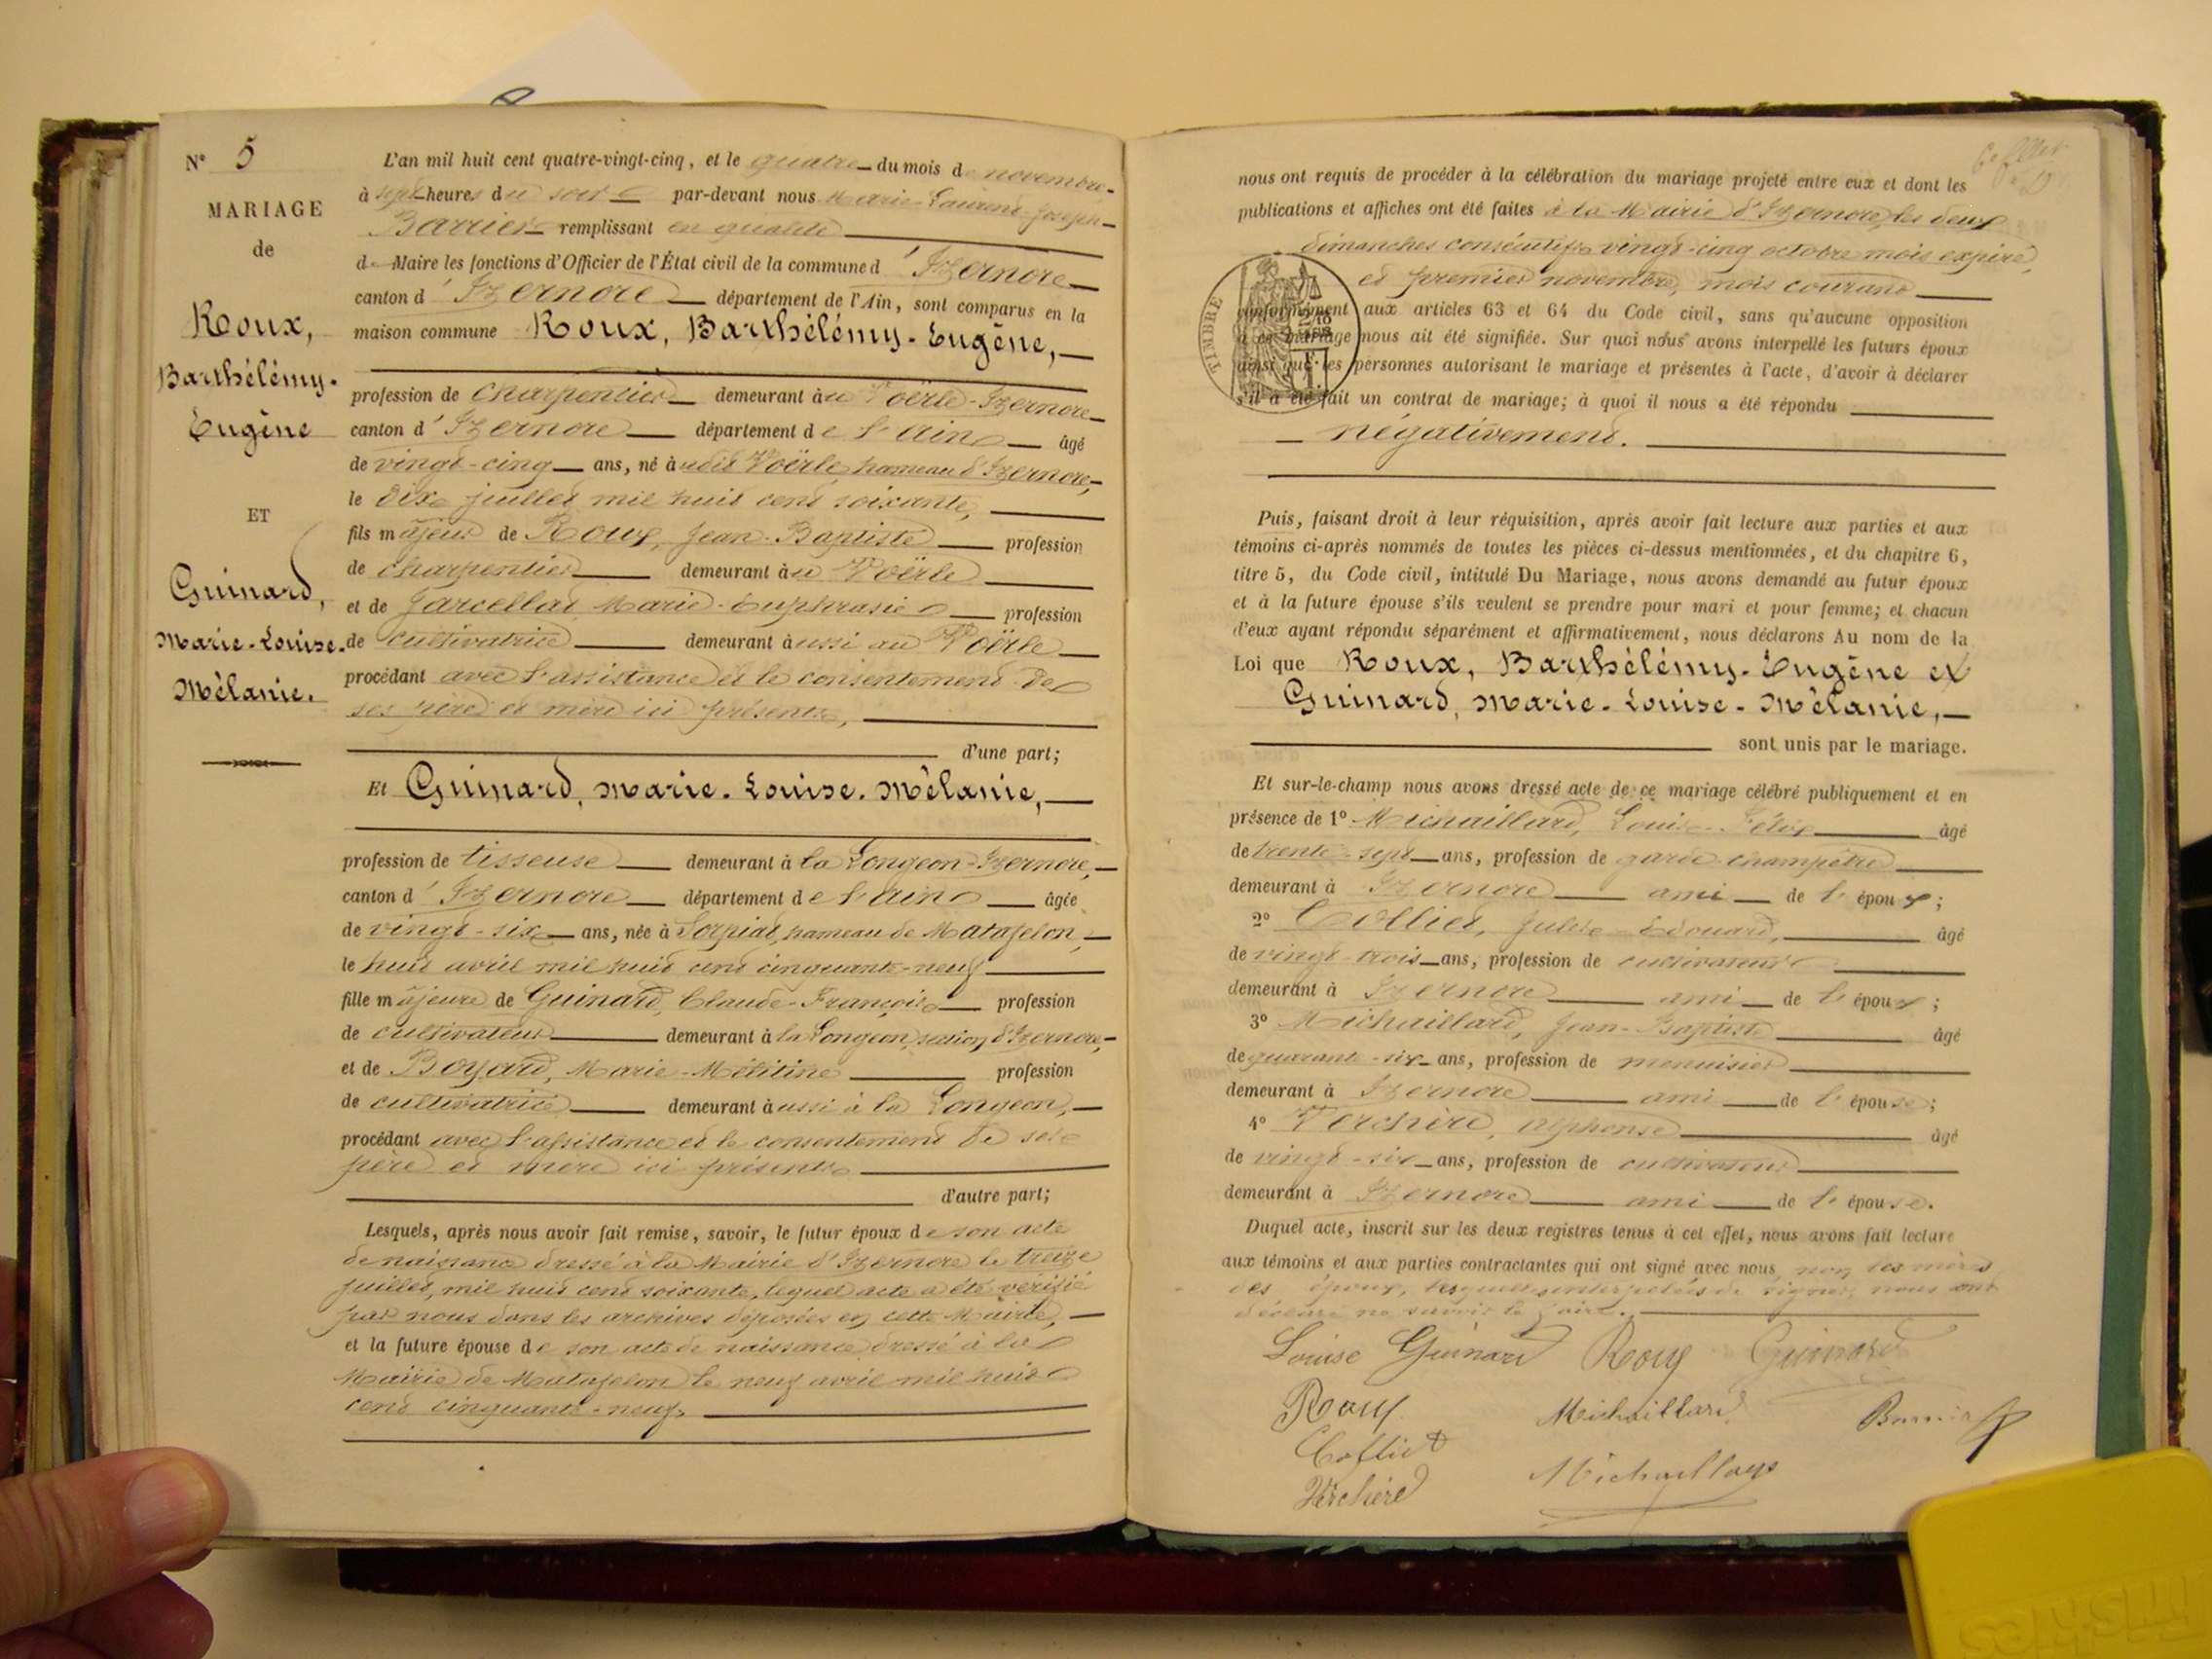 N° 5
MARIAGE
de
Roux,
Barthélémy-
Eugène
ET
Guinard,
Marie-Louise-
Mélanie.
L'an mil huit cent quatre-vingt-cinq, et le quatre du mois de novembre
à sept heures du soir par-devant nous Marie Laurent Joseph
Barrier remplissant en qualité
de Maire les fonctions d'Officier de l'État civil de la commune d'Izernore
canton d'Izernore département de l'Ain, sont comparus en la
maison commune Roux, Barthélémy-Eugène,
profession de charpentier demeurant au Voërle-Izernore
canton d'Izernore département de l'Ain âgé
de vingt-cinq ans, né audit Voërle, hameau d'Izernore,
le dix juillet mil huit cent soixante,
fils majeur de Roux, Jean-Baptiste profession
de charpentier demeurant au Voërle
et de Jarcellat, Marie-Euphrasie profession
de cultivatrice demeurant aussi au Voërle
procédant avec l'assistance et le consentement de
ses père et mère ici présents,
d'une part;
Et Guinard, Marie-Louise-Mélanie,
profession de tisseuse demeurant à la Longeon-Izernore,
canton d'Izernore département de l'Ain âgée
de vingt-six ans, née à Sorpiat, hameau de Matafelon,
le huit avril mil huit cent cinquante-neuf
fille majeure de Guinard, Claude-François profession
de cultivateur demeurant à la Longeon, section d'Izernore,
et de Boyard, Marie-Mélitine profession
de cultivatrice demeurant aussi à la Longeon,
procédant avec l'assistance et le consentement de ses
père et mère ici présents
d'autre part;
Lesquels, après nous avoir fait remise, savoir, le futur époux de son acte
de naissance dressé à la Mairie d'Izernore le treize
juillet, mil huit cent soixante, lequel acte a été vérifié
par nous dans les archives déposées en cette Mairie,
et la future épouse de son acte de naissance dressé à la
Mairie de Matafelon le neuf avril mil huit
cent cinquante-neuf,
nous ont requis de procéder à la célébration du mariage projeté entre eux et dont les
publications et affiches ont été faites à la Mairie d'Izernore, les deux
dimanches consécutifs vingt-cinq octobre mois expiré,
et premier novembre, mois courant
TIMBRE
conformément aux articles 63 et 64 du Code civil, sans qu'aucune opposition
à ce mariage nous ait été signifiée. Sur quoi nous avons interpellé les futurs époux
ainsi que les personnes autorisant le mariage et présentes à l'acte, d'avoir à déclarer
s'il a été fait un contrat de mariage; à quoi il nous a été répondu
négativement.
Puis, faisant droit à leur réquisition, après avoir fait lecture aux parties et aux
témoins ci-après nommés de toutes les pièces ci-dessus mentionnées, et du chapitre 6,
titre 5, du Code civil, intitulé Du Mariage, nous avons demandé au futur époux
et à la future épouse s'ils veulent se prendre pour mari et pour femme; et chacun
d'eux ayant répondu séparément et affirmativement, nous déclarons Au nom de la
Loi que Roux, Barthélémy-Eugène et
Guinard, Marie-Louise-Mélanie,
sont unis par le mariage.
Et sur-le-champ nous avons dressé acte de ce mariage célébré publiquement et en
présence de 1° Michaillard, Louis-Félix âgé
de trente-sept ans, profession de garde champêtre
demeurant à Izernore ami de l'époux;
2° Colliet, Jules-Edouard, âgé
de vingt-trois ans, profession de cultivateur
demeurant à Izernore ami de l'époux;
3° Michaillard, Jean-Baptiste âgé
de quarante-six ans, profession de menuisier
demeurant à Izernore ami de l'épouse;
4° Verchère, Alphonse âgé
de vingt-six ans, profession de cultivateur
demeurant à Izernore ami de l'épouse.
Duquel acte, inscrit sur les deux registres tenus à cet effet, nous avons fait lecture
aux témoins et aux parties contractantes qui ont signé avec nous, non les mères
des époux, lesquelles interpelées de signer, nous ont
déclaré ne savoir le faire.
Louise Guinard Roux Guinard
Roux Michaillard Barrier
Colliet
Verchère Michaillard